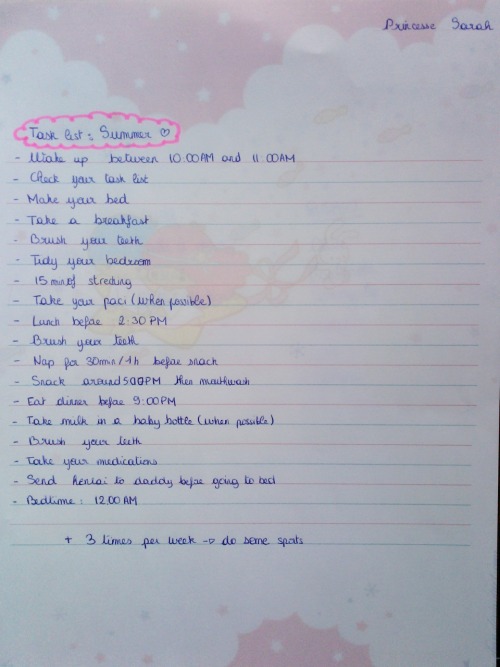 Princesse Sarah
Task list : Summer ♡
- Wake up between 10:00AM and 11:00AM
- Check your task list
- Make your bed
- Take a breakfast
- Brush your teeth
- Tidy your bedroom
- 15 min of streching
- Take your paci (when possible)
- Lunch before 2:30 PM
- Brush your teeth
- Nap for 30min/1h before snack
- Snack around 5:00PM then mouthwash
- Eat dinner before 9:00PM
- Take milk in a baby bottle (when possible)
- Brush your teeth
- Take your medications
- Send hentai to daddy before going to bed
- Bedtime : 12:00 AM
+ 3 times per week → do some sports